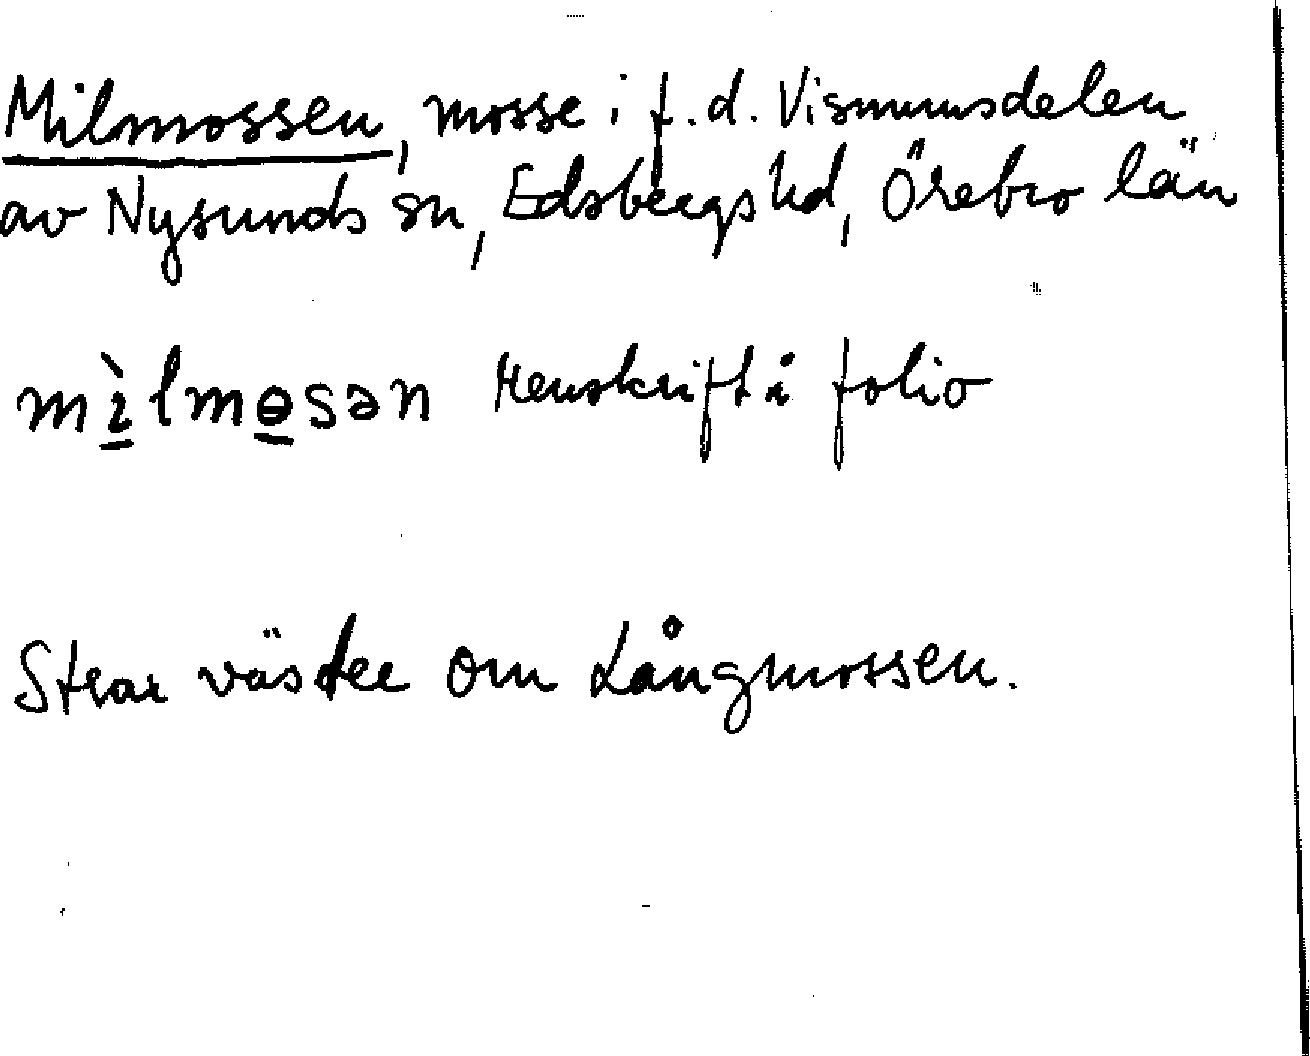 Milmossen, mosse i f.d. Vismumsdelen
av Nysunds sn, Edsbergs hd, Örebro län
mìlmɵsən Renskrift i folio
Strax väster om Långmossen.